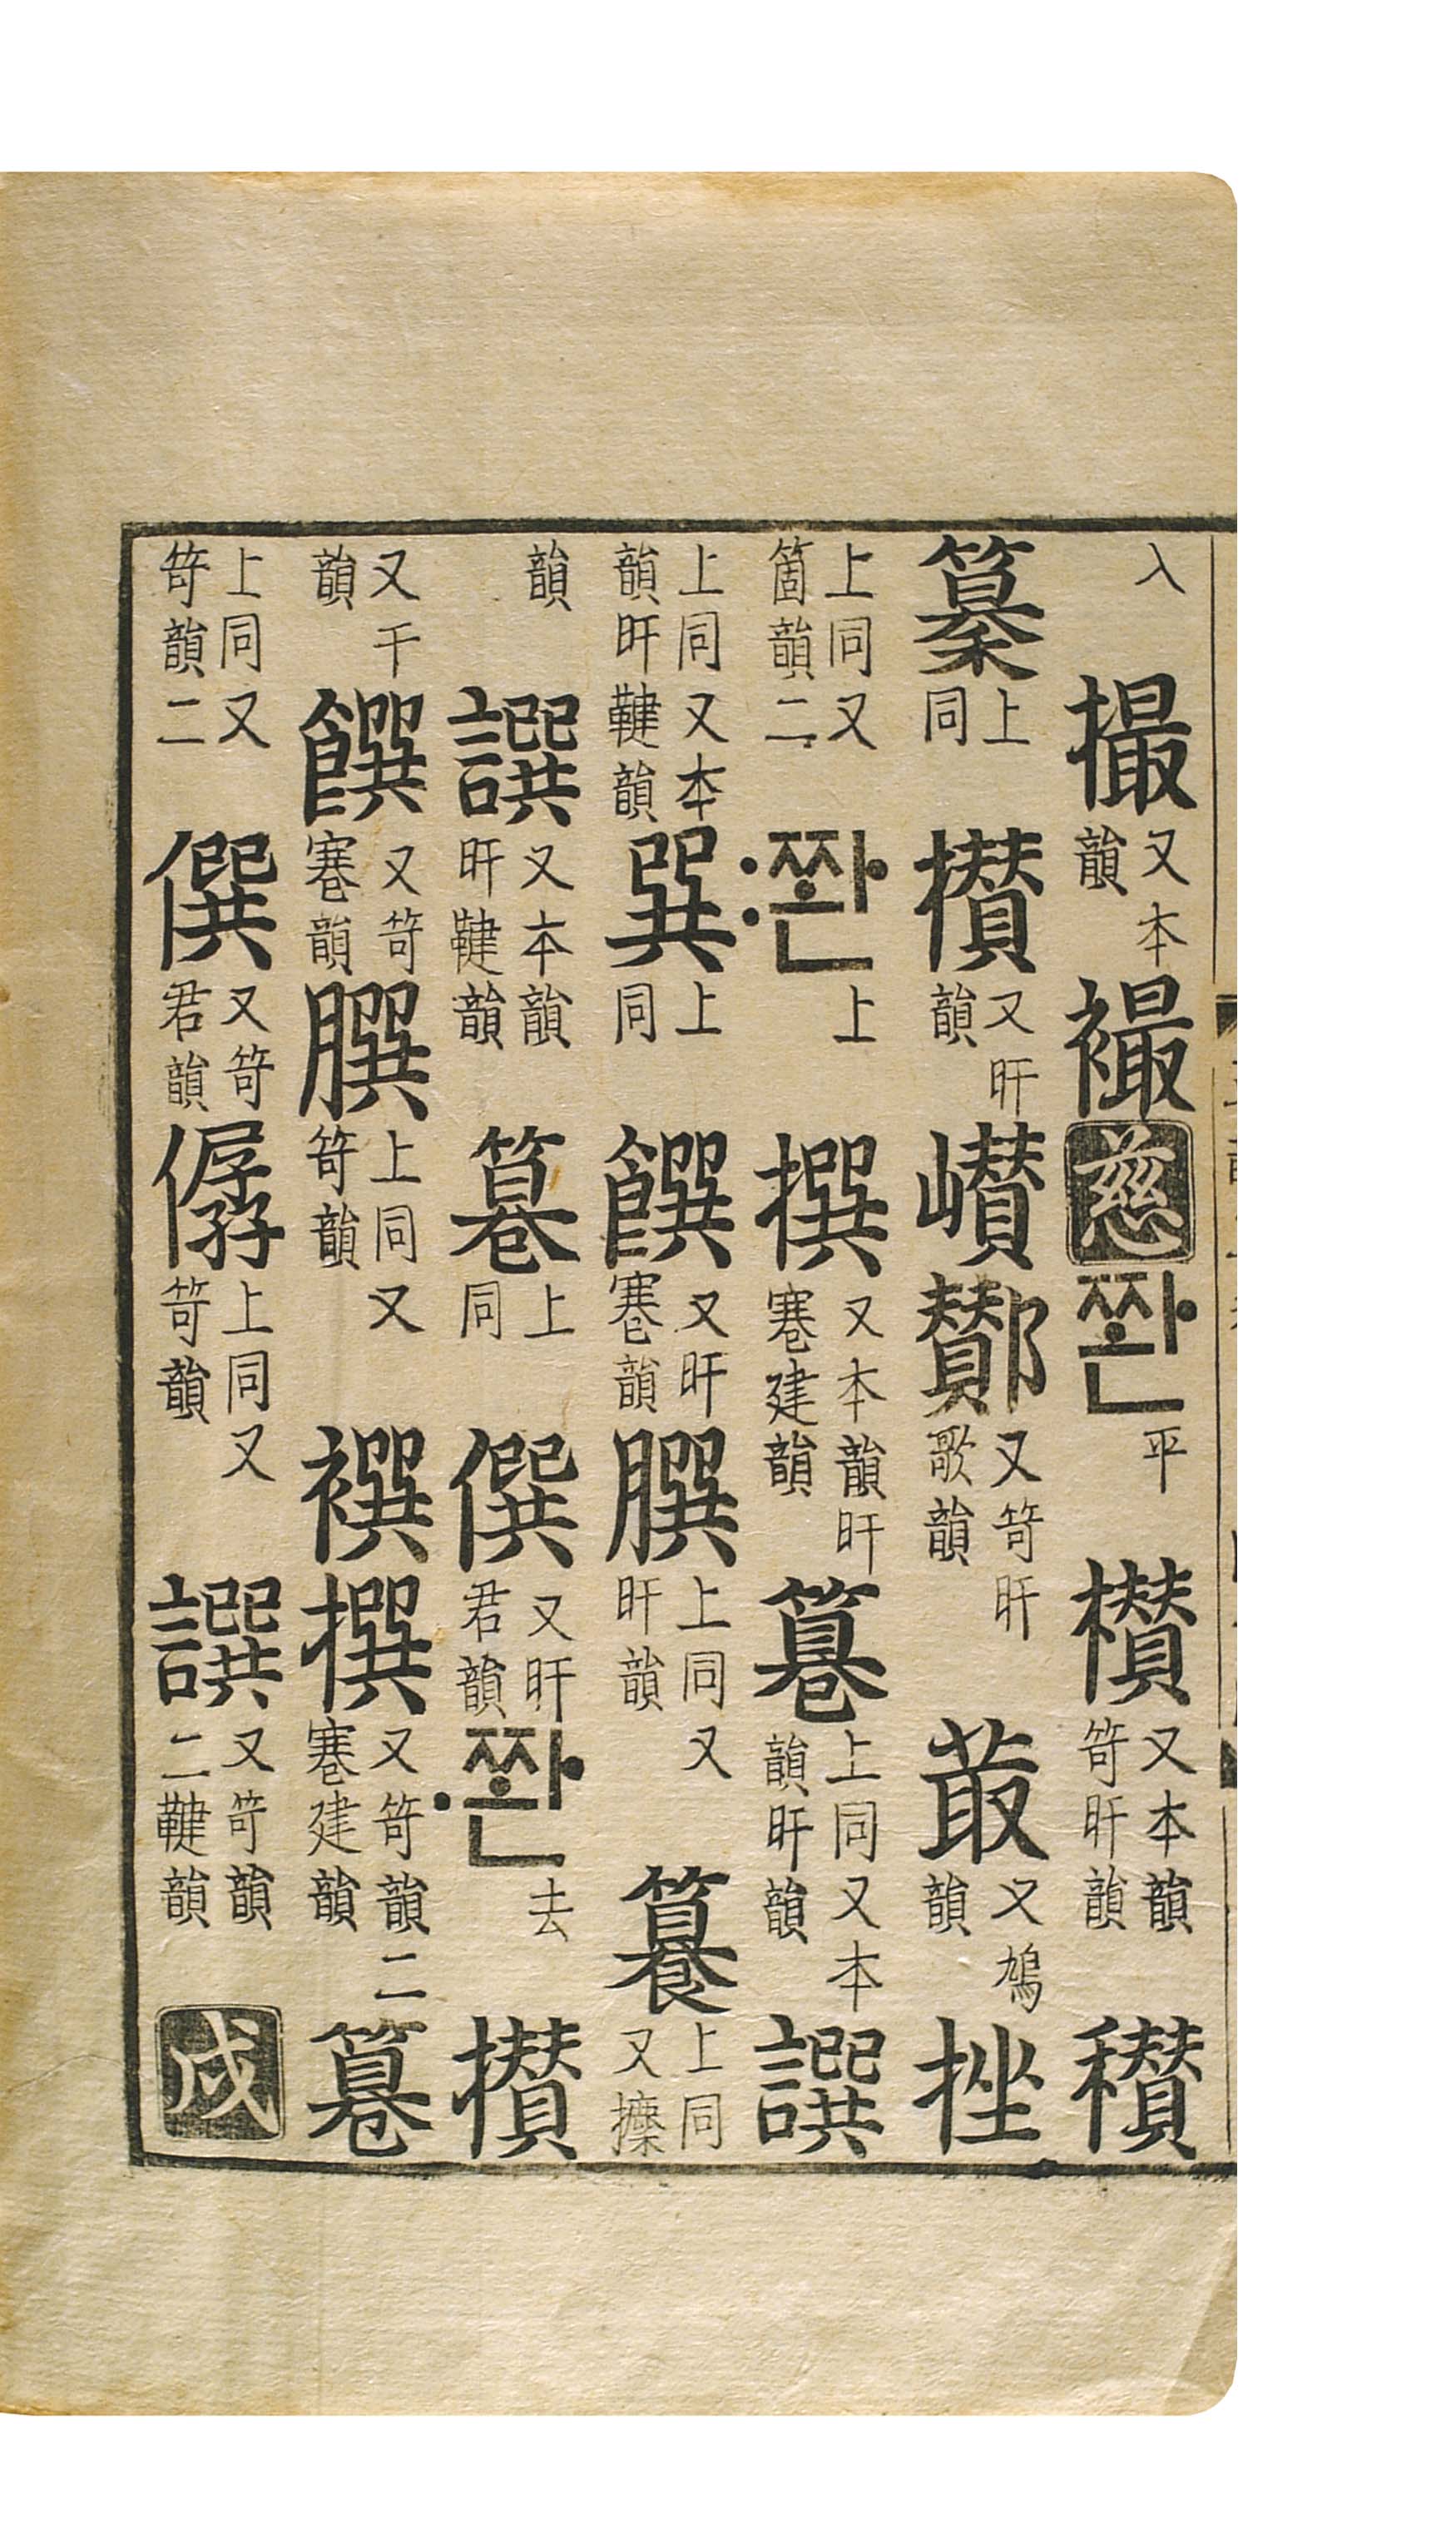 入撮又本韻襊慈쫜平欑又本韻笴旰韻穳
纂上同攢又旰韻巑酇又笴旰歌韻菆又鳩韻挫
上同又箇韻二〯쫜上撰又本韻旰寋建韻篹上同又本韻旰韻譔
上同又本韻旰鞬韻巽上同饌又旰寋韻𦠆上同又旰韻籑上同又
韻譔又本韻旰鞬韻篹上同僎又旰君韻〮쫜去攢
又干韻饌又笴寋韻𦠆上同又笴韻襈撰又笴韻二寋建韻篹
上同又笴韻二僎又笴君韻僝上同又笴韻譔又笴韻二鞬韻戌